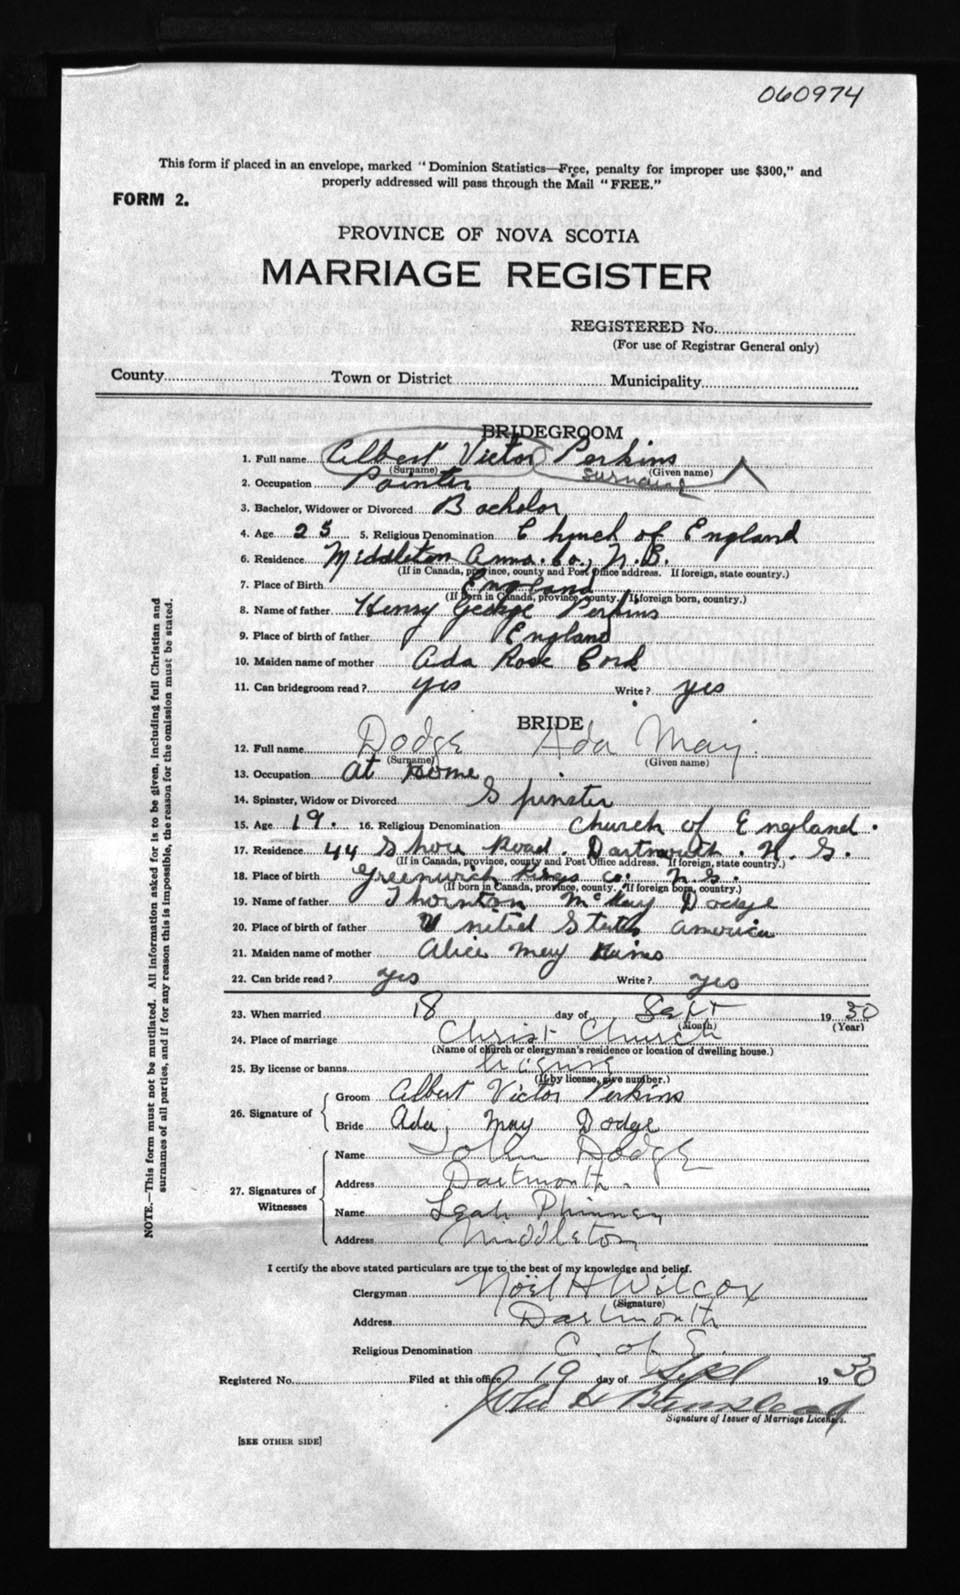 060974
This form if placed in an envelope, marked "Dominion Statistics—Free, penalty for improper use $300," and
properly addressed will pass through the Mail "FREE."
FORM 2.
PROVINCE OF NOVA SCOTIA
MARRIAGE REGISTER
REGISTERED No.
(For use of Registrar General only)
County Town or District Municipality
BRIDEGROOM
1. Full name Albert Victor Perkins
(Surname) (Given name)
surname
2. Occupation Painter
3. Bachelor, Widower or Divorced Bachelor
4. Age 25 5. Religious Denomination Church of England
6. Residence Middleton Anna. Co., N.B.
(If in Canada, province, county and Post Office address. If foreign, state country.)
7. Place of Birth England
(If born in Canada, province, county. If foreign born, country.)
8. Name of father Henry George Perkins
9. Place of birth of father England
10. Maiden name of mother Ada Rose Cork
11. Can bridegroom read? yes Write? yes
BRIDE
12. Full name Dodge Ada May
(Surname) (Given name)
13. Occupation At Home
14. Spinster, Widow or Divorced Spinster
15. Age 19. 16. Religious Denomination Church of England.
17. Residence 44 Shore Road. Dartmouth. N. S.
(If in Canada, province, county and Post Office address. If foreign, state country.)
18. Place of birth Greenwich Kings Co. N.S.
(If born in Canada, province, county. If foreign born, country.)
19. Name of father Thornton McKay Dodge
20. Place of birth of father United States America
21. Maiden name of mother Alice May
22. Can bride read? yes Write? yes
23. When married 18 day of Sept 1930
(Month) (Year)
24. Place of marriage Christ Church
(Name of church or clergyman's residence or location of dwelling house.)
25. By license or banns license
(If by license, give number.)
26. Signature of
Groom Albert Victor Perkins
Bride Ada May Dodge
27. Signatures of Witnesses
Name John Dodge
Address Dartmouth.
Name Leah Phinney
Address Middleton
I certify the above stated particulars are true to the best of my knowledge and belief.
Clergyman Noël H Wilcox
(Signature)
Address Dartmouth
Religious Denomination C. of E.
Registered No. Filed at this office 19 day of Sept 1930
John
Signature of Issuer of Marriage Licenses.
[SEE OTHER SIDE]
NOTE.—This form must not be mutilated. All information asked for is to be given, including full Christian and
surnames of all parties, and if for any reason this is impossible, the reason for the omission must be stated.